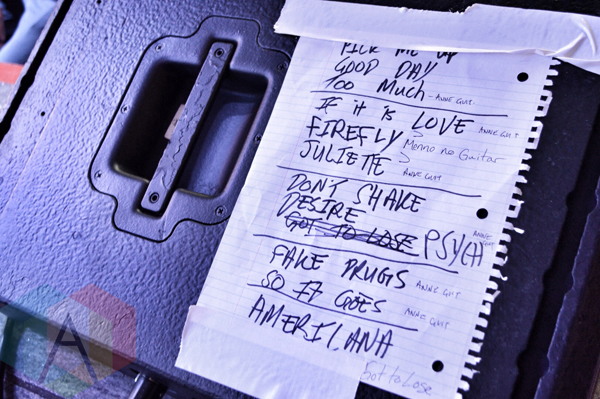 PICK ME UP
GOOD DAY
TOO MUCH - ANNE GUIT.
IF IT IS LOVE ANNE GUIT
FIREFLY Menno no Guitar
JULIETTE ANNE GUIT
DON'T SHAKE
DESIRE
GOT TO LOSE PSYCH ANNE GUIT
FAKE DRUGS ANNE GUIT
SO IT GOES ANNE GUIT
AMERICANA
Got to Lose
A